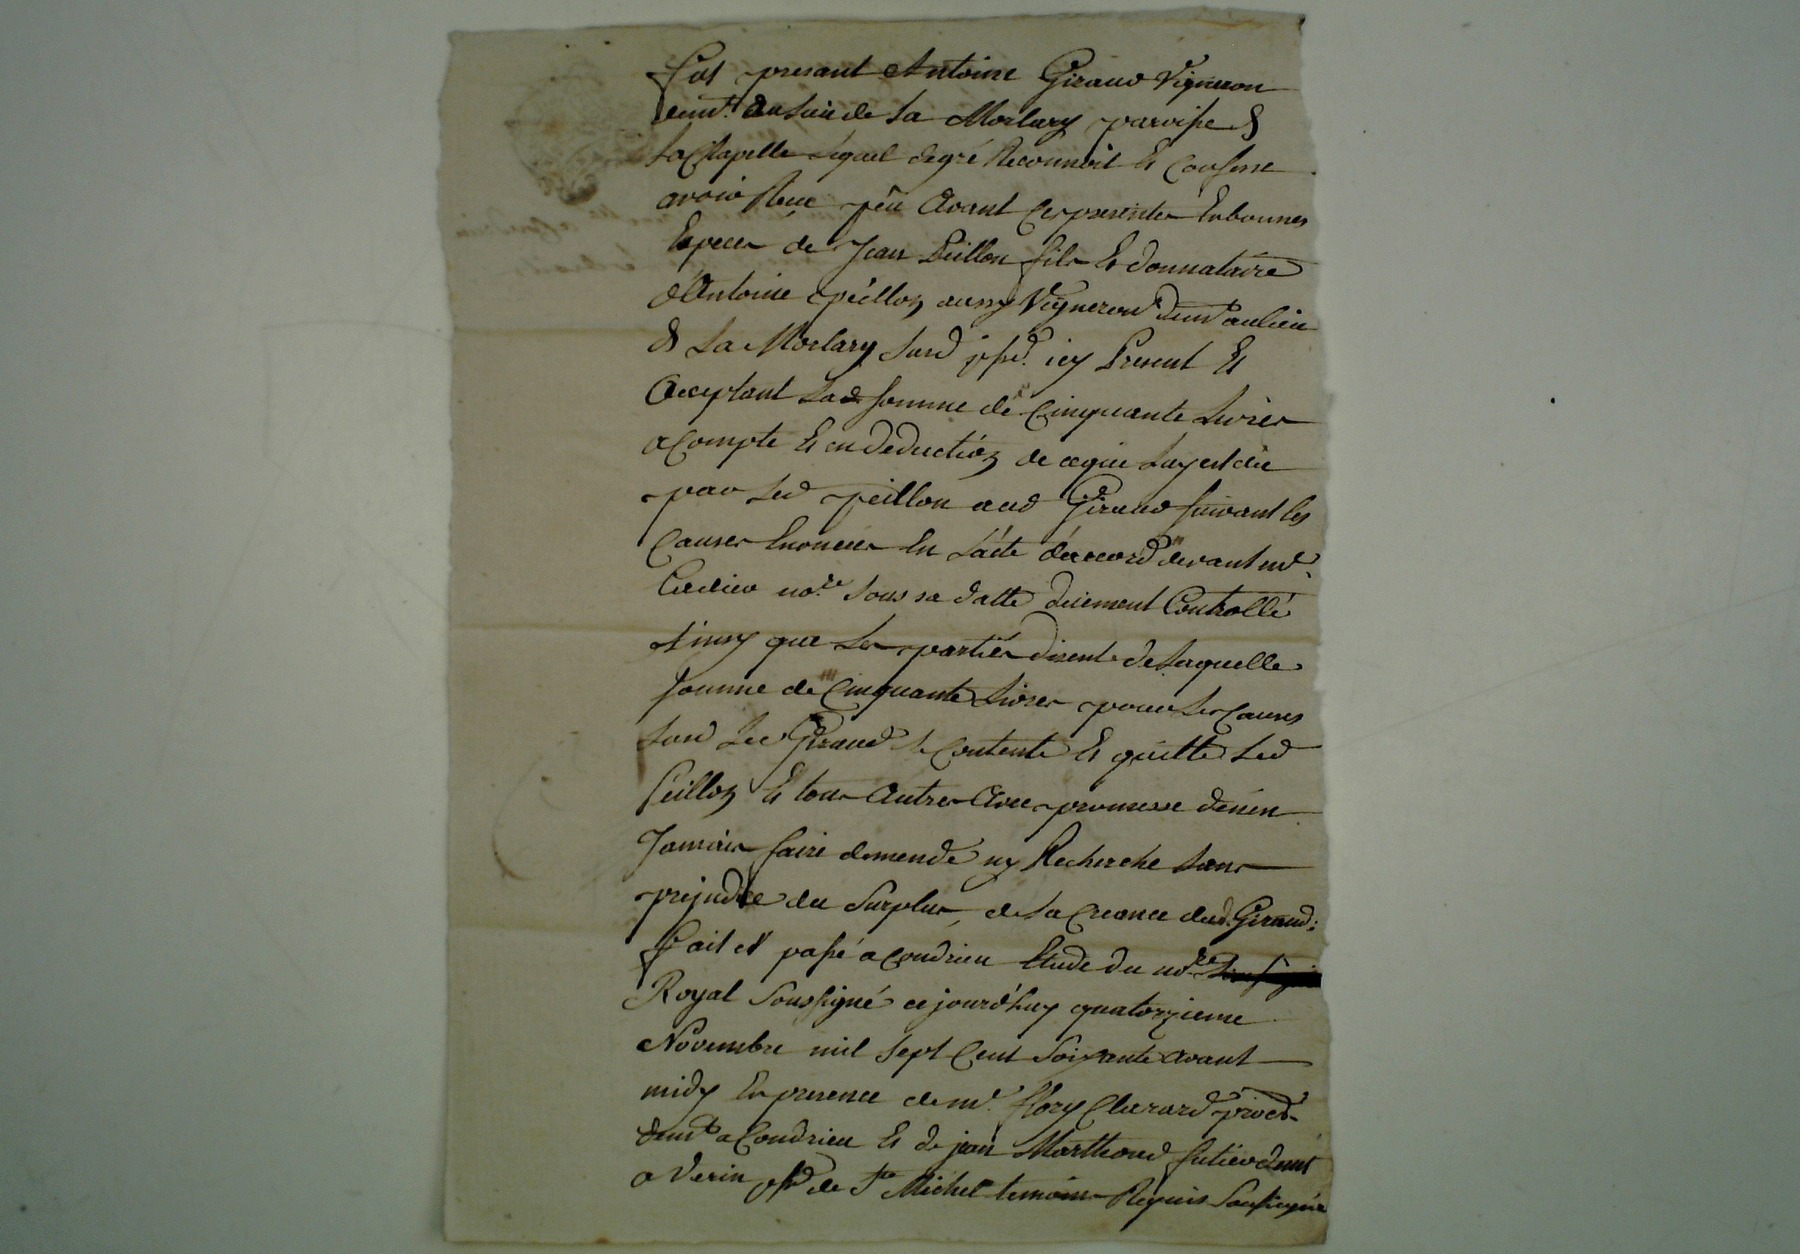 fut presant Antoine Giraud Vigneron
demt. au lieu de la Morlary paroisse d
la Chapelle lequel degré Reconnoit Et Confesse
avoir Reçu peu avant ces presentes En bonnes
Especes de Jean Peillon fils Et donnataire
d'Antoine peillon aussy Vigneron demt au lieu
d La Morlary susd psse. icy Present Et
Acceptant La somme de Cinquante Livres
a Compte Et en deduction de ce qui Luy est du
par Led peillon aud Giraud suivant les
Causes Enoncées En L'acte d'accord devant me.
nore. sous sa datte duement Controllé
Ainsy que Les parties disent de Laquelle
somme de Cinquante Livres pour Les Causes
susd Led Giraud se Contente Et quitte Led
Peillon Et tous Autres Avec promesse d'en en
Jamais faire demende ny Recherche sans
prejudice du Surplus de La Creance dud. Giraud:
fait et passé a Condrieu Etude du nore
Royal Soussigné ce jourd'huy quatorzieme
Novembre mil sept Cent Soixante avant
midy En presence de me. flory Clerard proc
demt a Condrieu Et de jean Marthoud demt
a Verin psse de St Michel temoins Requis Soussignés